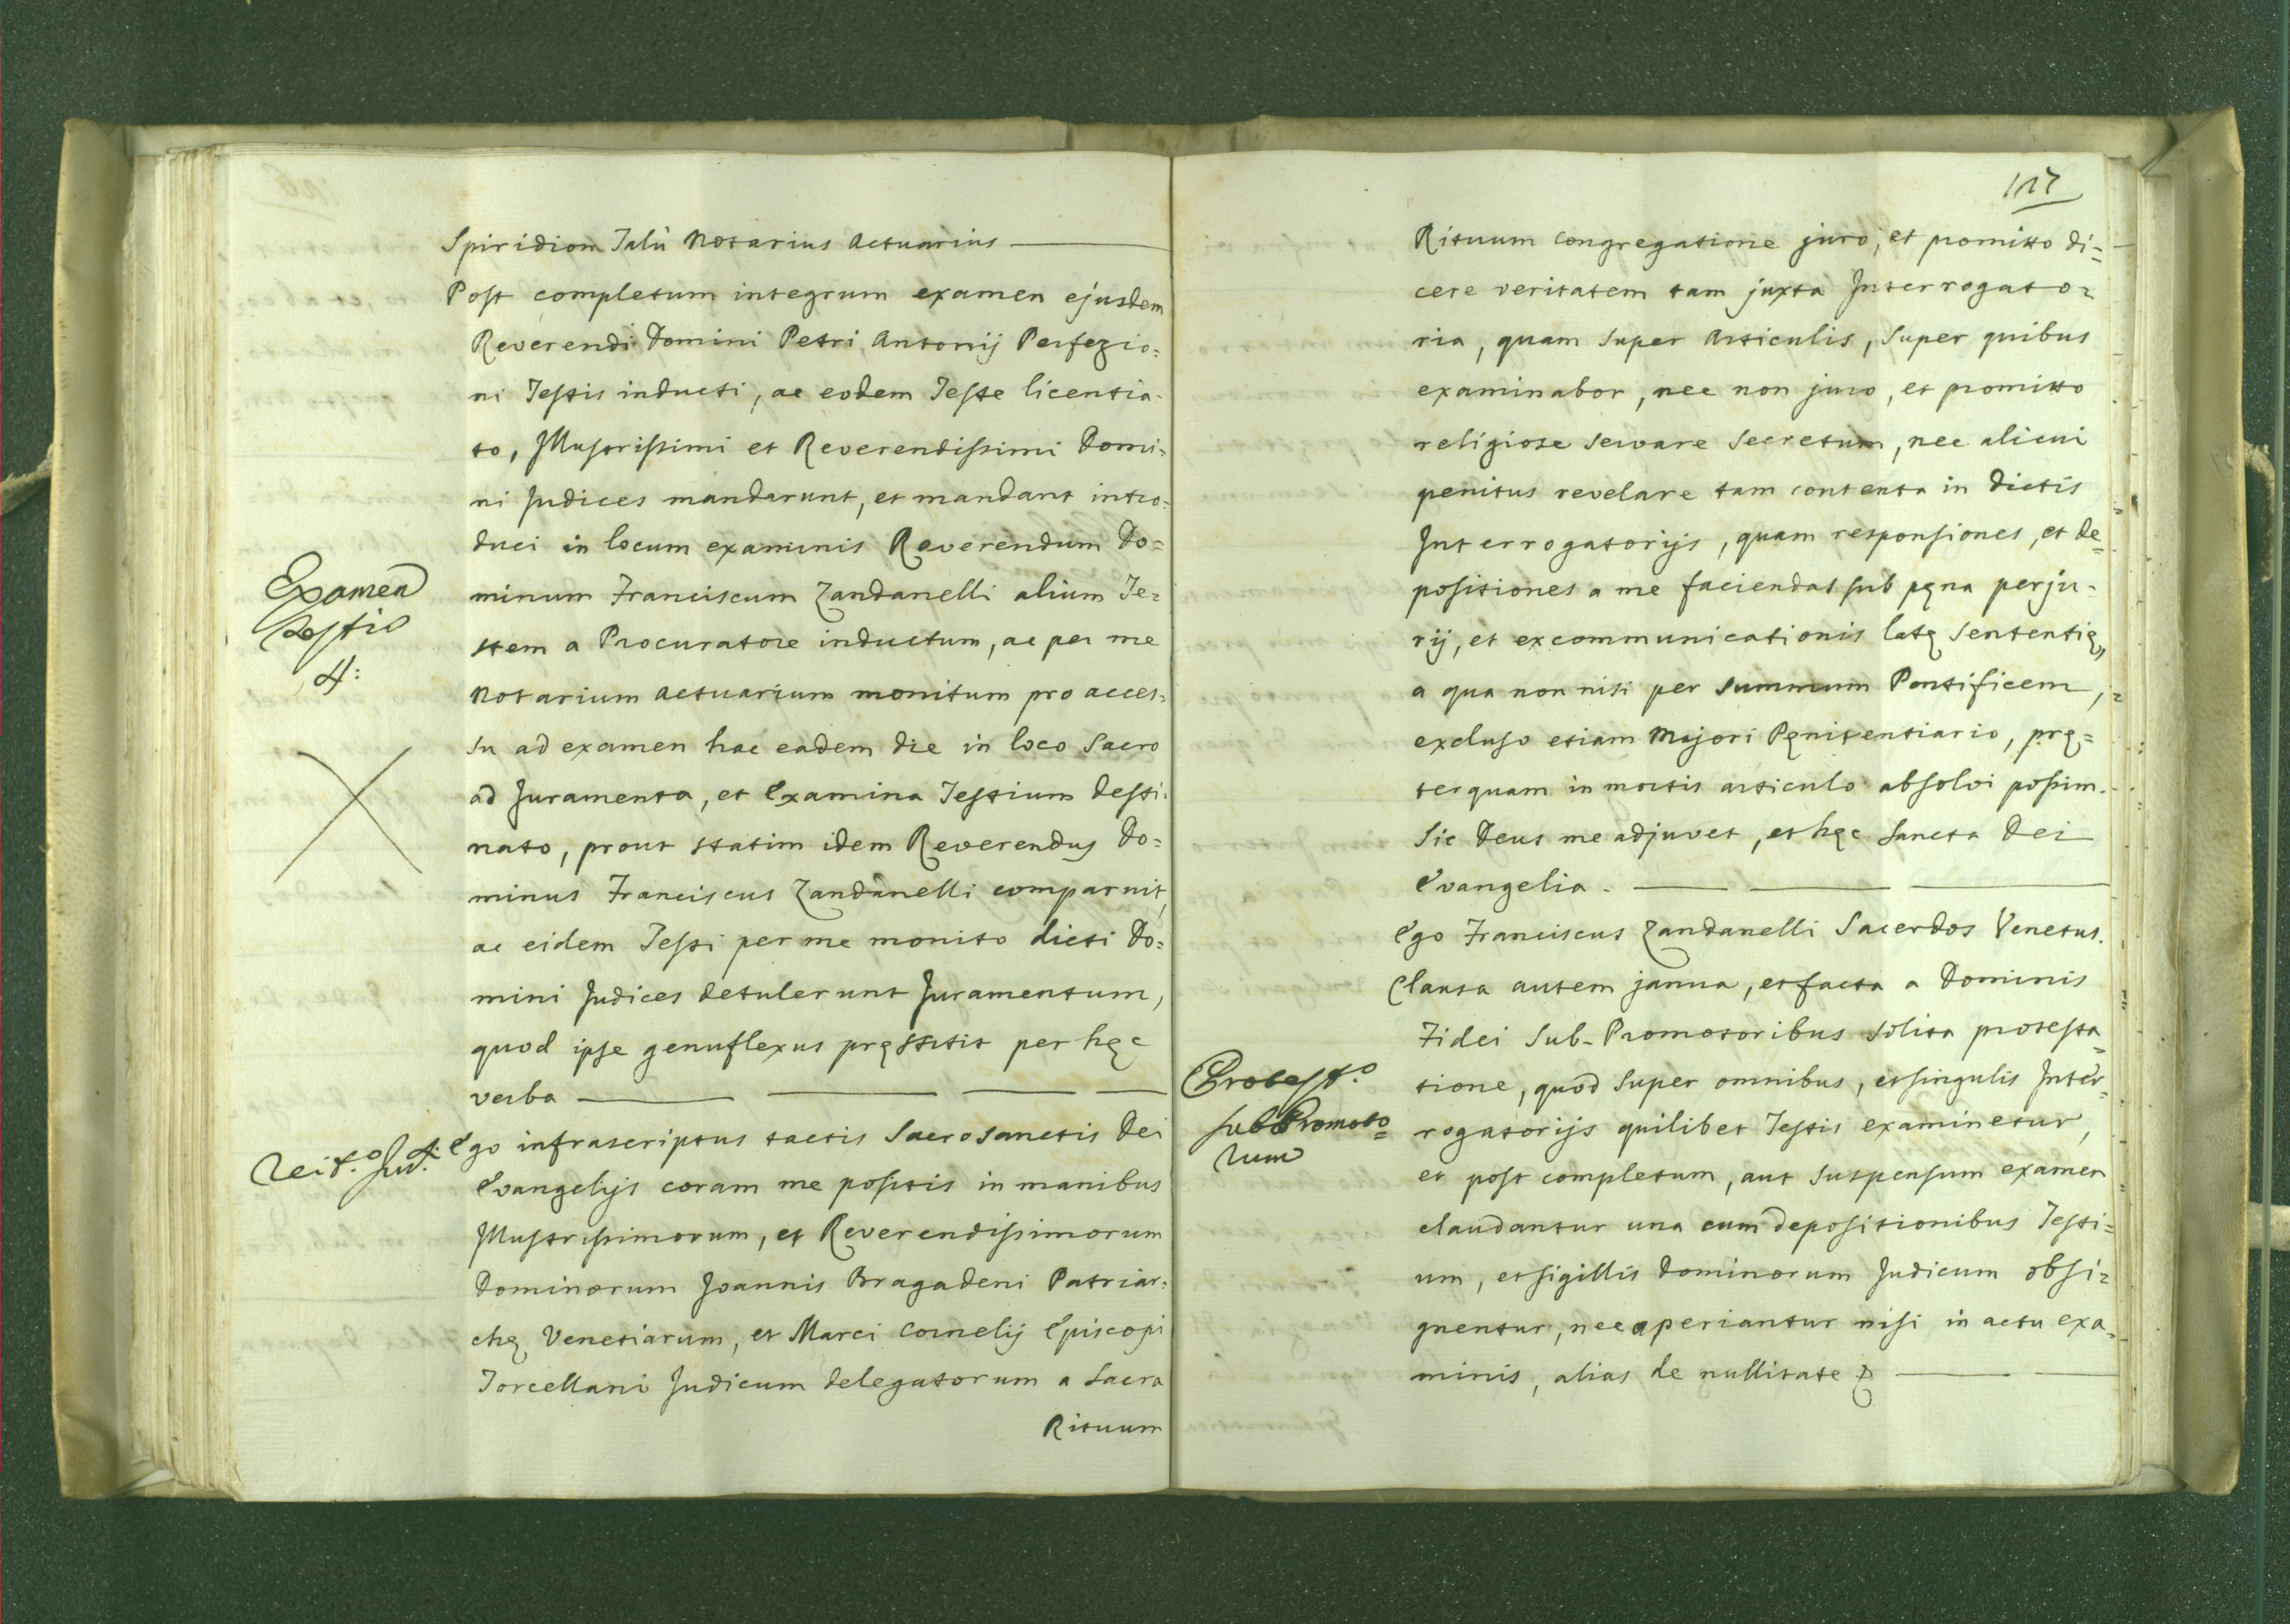 Spiridion Talù Notarius Actuarius
Post completum integrum examen ejusdem
Reverendi Domini Petri Antonij Perfezio=
ni Testis inducti, ac eodem Teste licentia-
to, Illustrissimi et Reverendissimi Domi=
ni Judices mandarunt, et mandant intro=
duci in locum examinis Reverendum Do=
minum Franciscum Zandanelli alium Te=
stem a Procuratore inductum, ac per me
Notarium Actuarium monitum pro acces=
su ad examen hac eadem die in loco Sacro
ad Juramenta, et Examina Testium desti=
nato, prout statim idem Reverendus Do=
minus Franciscus Zandanelli comparuit,
ac eidem Testi per me monito dicti Do=
mini Judices detulerunt Juramentum,
quod ipse genuflexus pręstitit per hęc
verba
Ego infrascriptus tactis Sacrosanctis Dei
Evangelijs coram me positis in manibus
Illustrissimorum, et Reverendissimorum
Dominorum Joannis Bragadeni Patriar=
chę Venetiarum, et Marci Cornelij Episcopi
Torcellani Judicum delegatorum a Sacra
Rituum
Examen
Testis
4:
117
Rituum Congregatione juro, et promitto di=
cere veritatem tam juxta Interrogato=
ria, quam super Articulis, super quibus
examinabor, nec non juro, et promitto
religiose servare Secretum, nec alicui
penitus revelare tam contenta in dictis
Interrogatorijs, quam responsiones, et de=
positiones a me faciendas sub pęna perju-
rij, et excommunicationis latę sententię,
a qua non nisi per summum Pontificem,
excluso etiam Majori Pęnitentiario, prę=
terquam in mortis articulo absolvi possim.
Sic Deus me adjuvet, et hęc Sancta Dei
Evangelia.
Ego Franciscus Zandanelli Sacerdos Venetus.
Clausa autem janua, et facta a Dominis
Fidei Sub-Promotoribus solita protesta=
tione, quod super omnibus, et singulis Inter=
rogatorijs quilibet Testis examinetur,
et post completum, aut suspensum examen
claudantur una cum depositionibus Testi=
um, et sigillis Dominorum Judicum obsi=
gnentur, nec aperiantur nisi in actu exa=
minis, alias de nullitate
Protest.o
sub Promoto=
rum